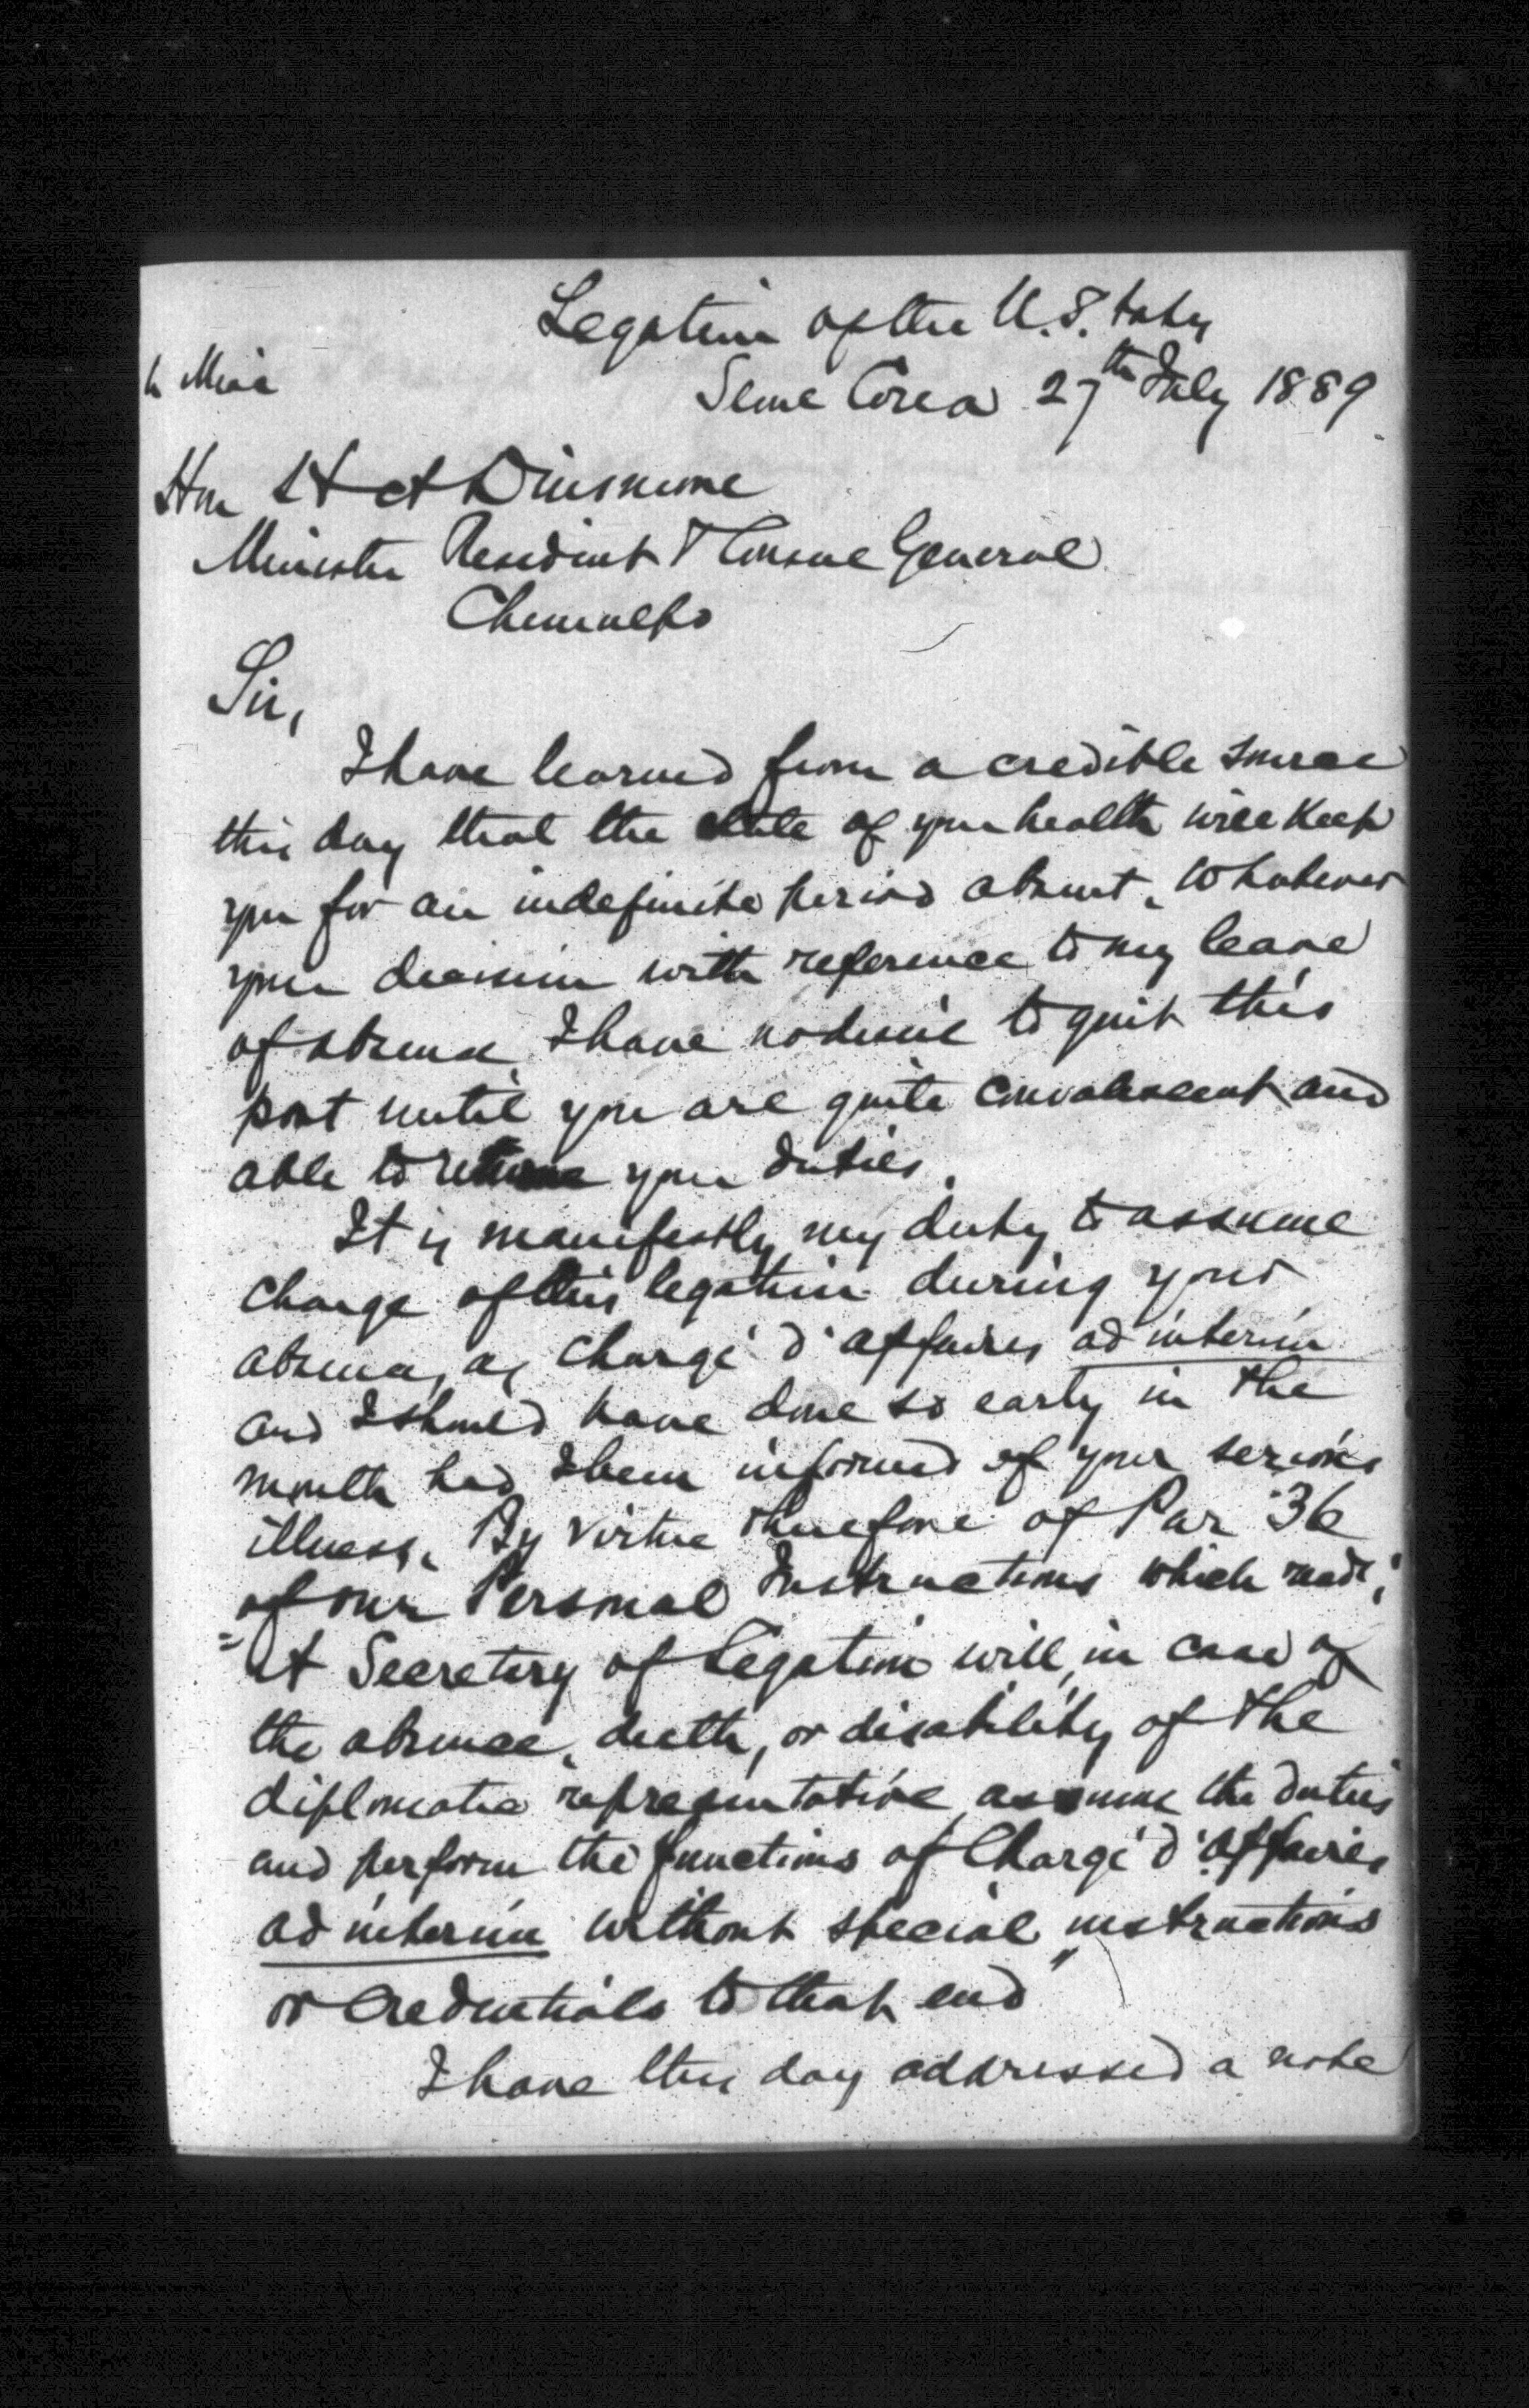 Legation of the U. States
Seoul Corea 27th July 1889
Hon H A Dinsmore
Minister Resident & Consul General
Chemulpo
Sir,
I have learned from a credible source
this day that the state of your health will keep
you for an indefinite period absent. Whatever
your decision with reference to my leave
of absence, I have no desire to quit this
post until you are quite convalescent and
able to your duties.
It is manifestly my duty to assume
charge of this legation during your
absence, as Chargé d'affaires ad interim
and I should have done so early in the
month had I been informed of your serious
illness. By virtue therefore of Par 36
of our Personal Instructions which reads;
"A Secretary of Legation will, in case of
the absence, death, or disability of the
diplomatic representative, assume the duties
and perform the functions of Chargé d'affaires
ad interim without special instructions
or credentials to that end"
I have this day addressed a note